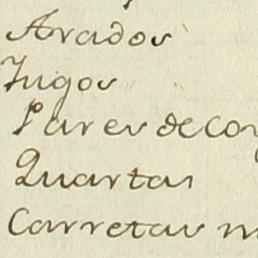 Arados
Jugos
Pares de
Quartas
Carretas